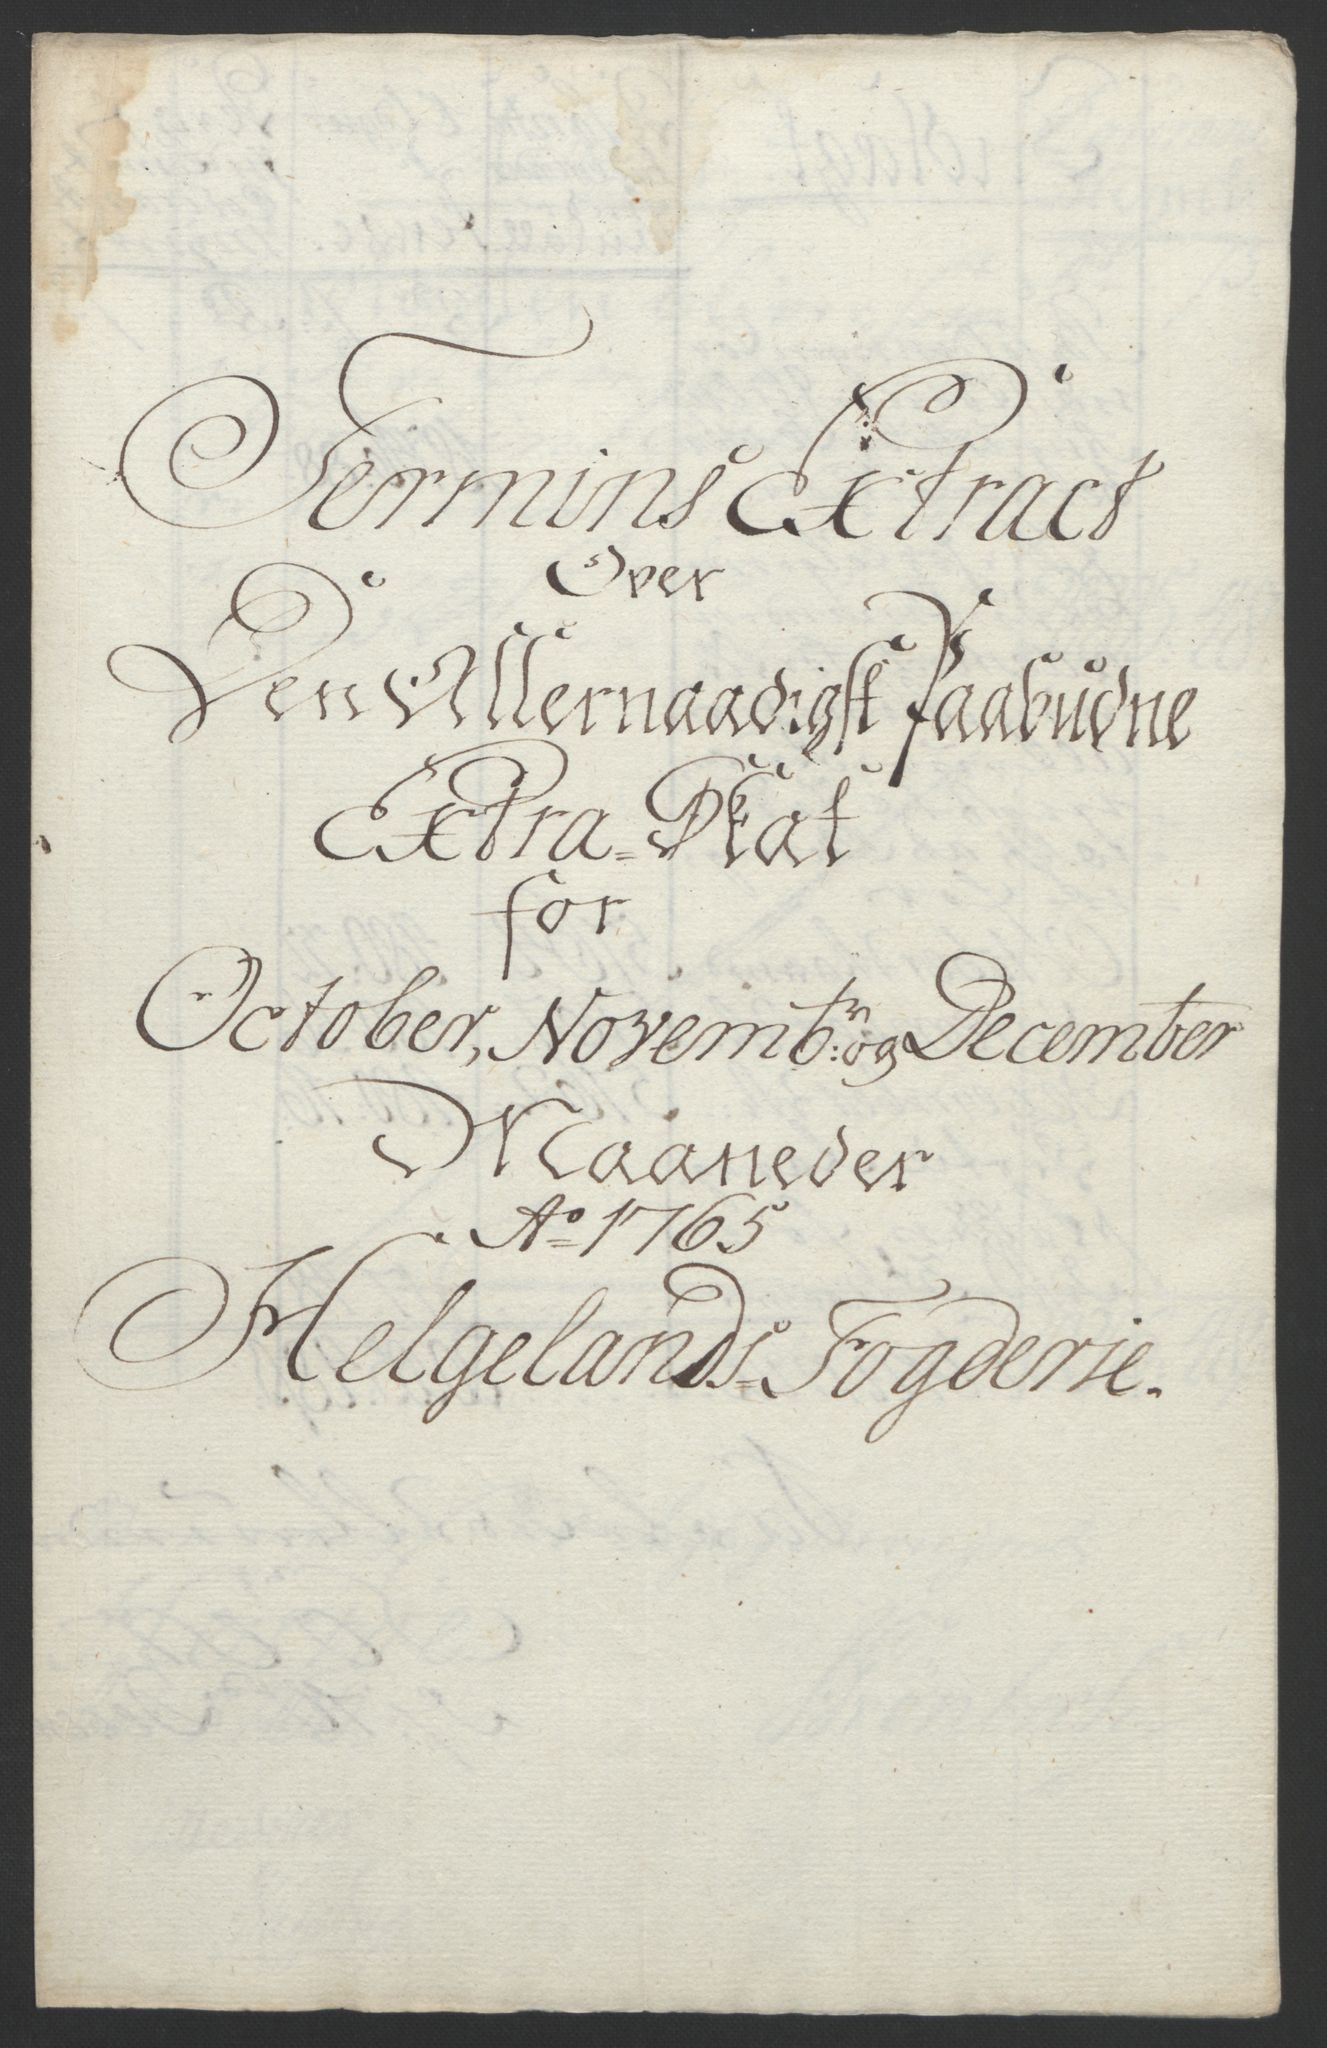 Termins Extract
Over
Den Allernaadigst Paabudne
Extra-Skat
for
October, Novembr: og December
Maaneder
Ao 1765
Helgelands Fogderie.